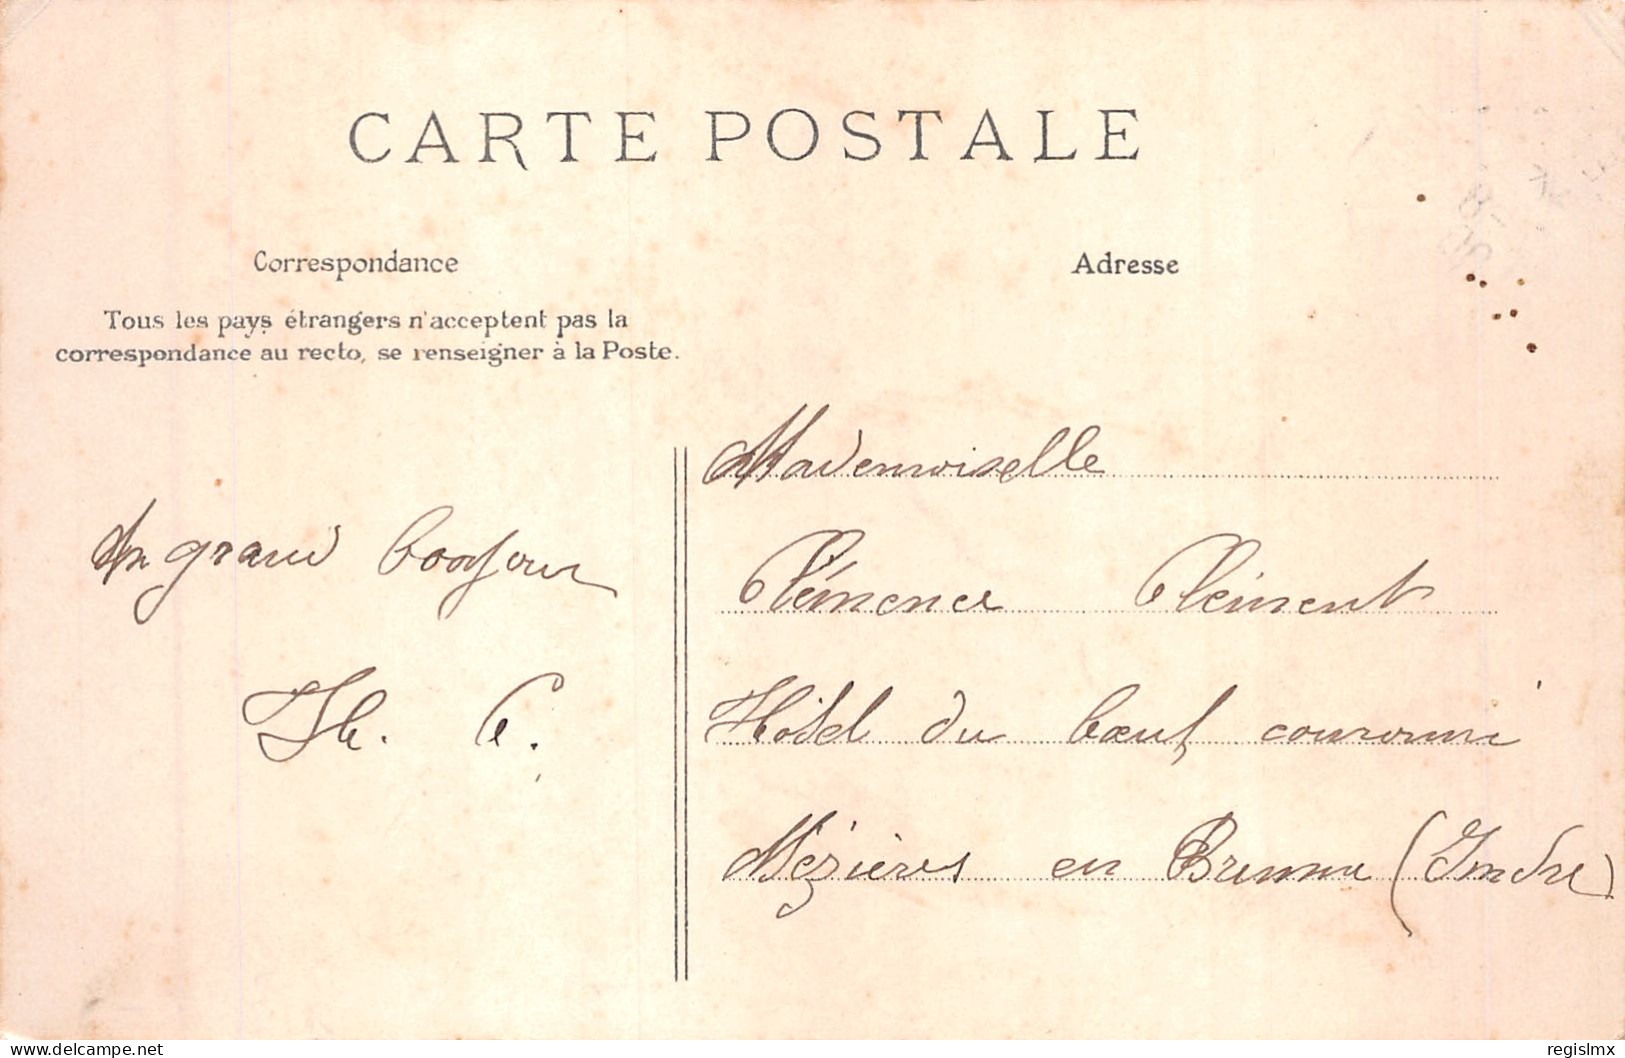 CARTE POSTALE
Correspondance
Tous les pays étrangers n'acceptent pas la
correspondance au recto, se renseigner à la Poste.
Un grand bonjour
Th. C.
Adresse
Mademoiselle
Clémence Clément
Hôtel du bœuf couronné
Mézières en Brenne (Indre)
www.delcampe.net
regislmx